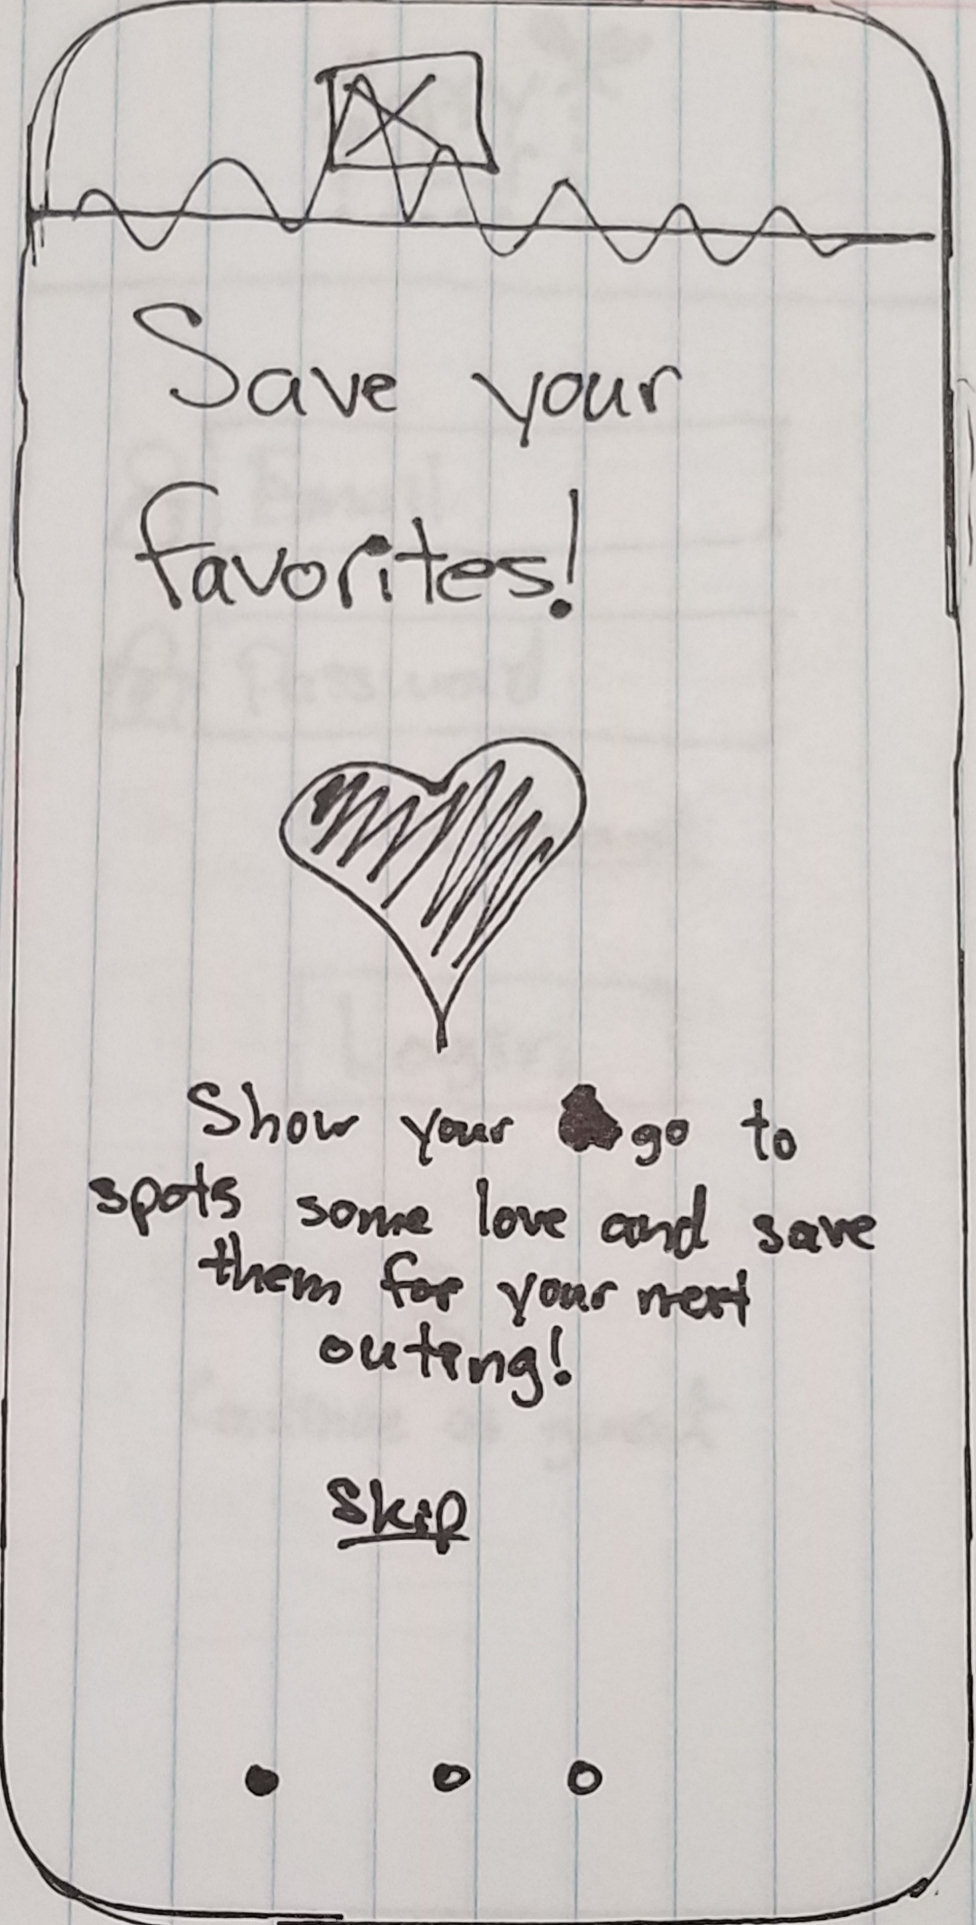 Save your
favorites!
Show your go to
spots some love and save
them for your next
outing!
Skip